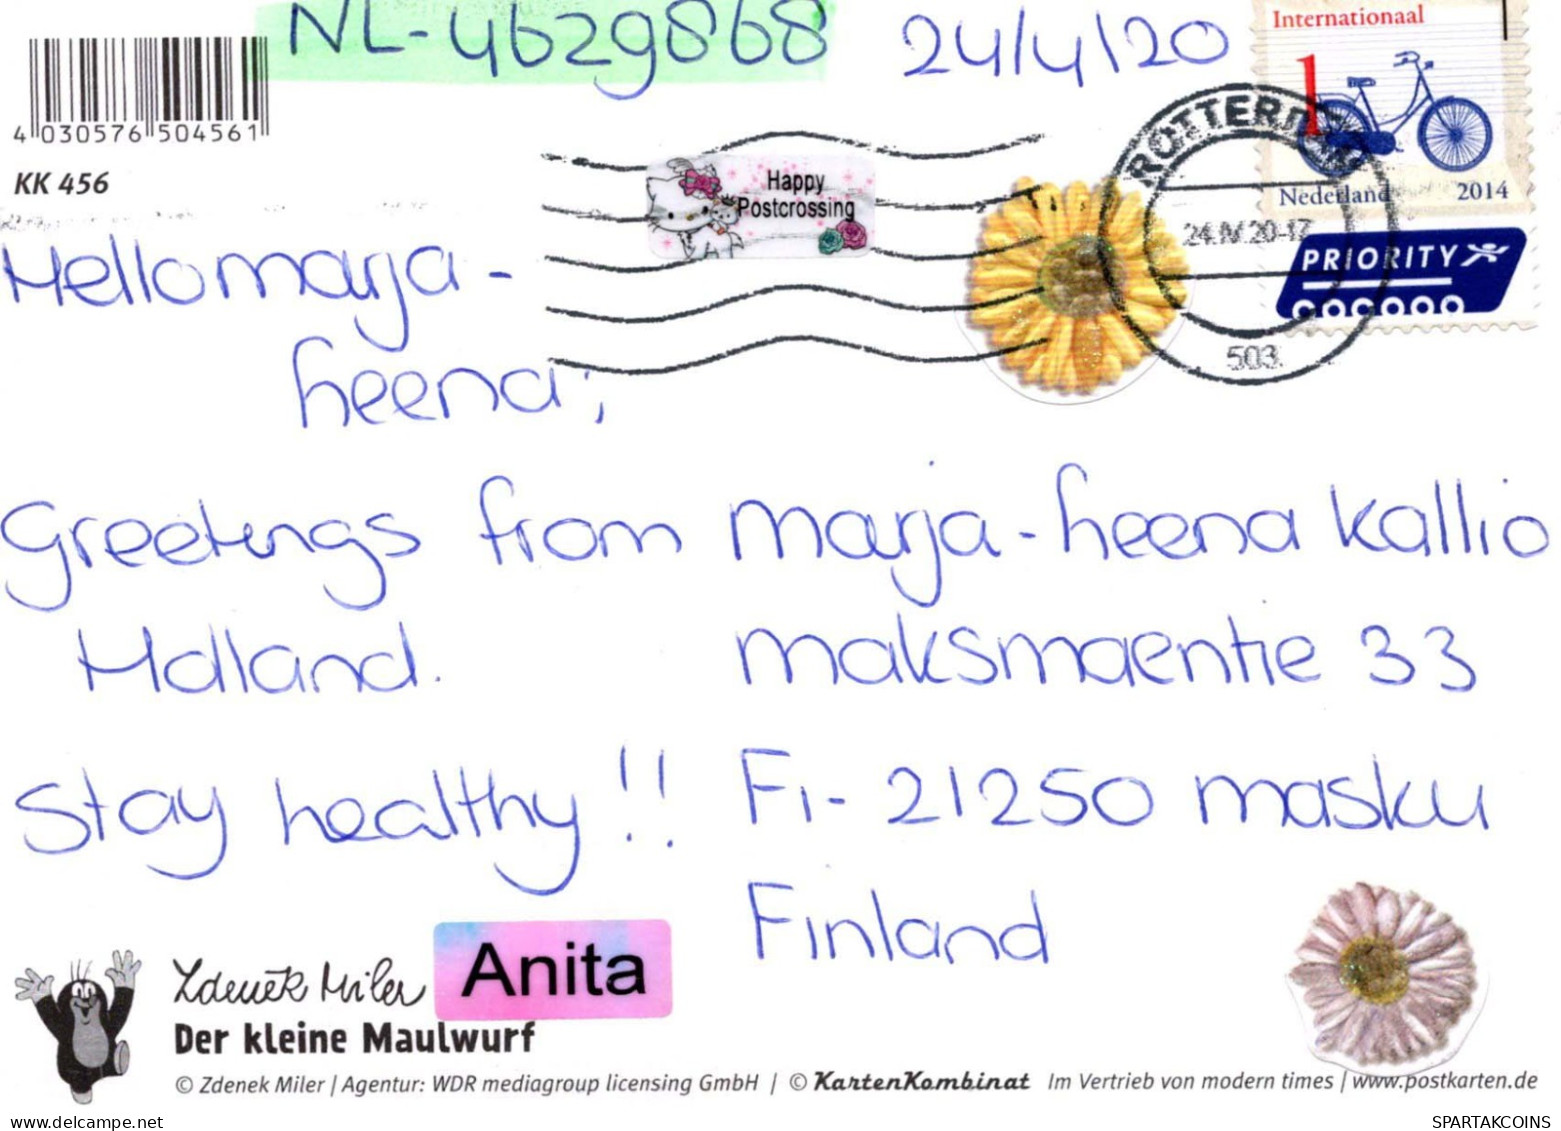 NL-4629868 24/4/20
Internationaal
1
4 030576 504561
KK 456
ROTTERDAM
Happy
Postcrossing
Nederland 2014
24.IV.20-17
PRIORITY
503
Hello marja-
heena,
Greetings from
Holland.
Stay healthy!!
marja-heena kallio
maksmaentie 33
Fi-21250 masku
Finland
Anita
Zdeněk Miler
Der kleine Maulwurf
© Zdenek Miler | Agentur: WDR mediagroup licensing GmbH | © KartenKombinat Im Vertrieb von modern times | www.postkarten.de
delcampe.net
SPARTAKCOINS